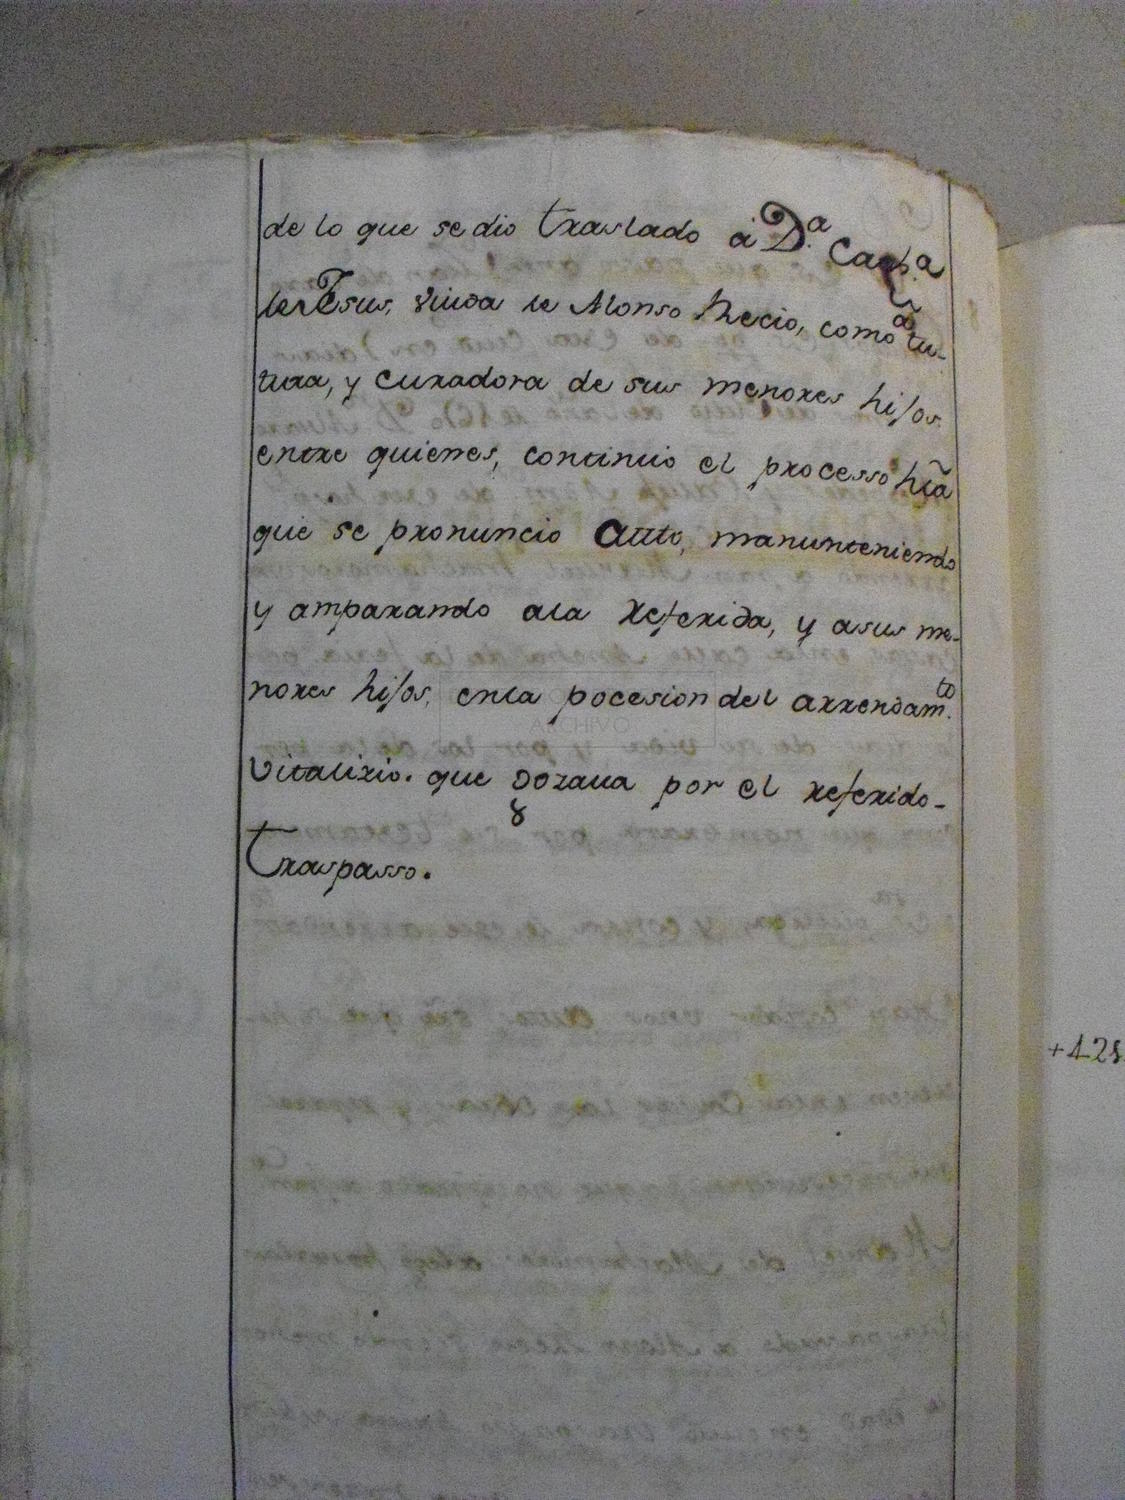 de lo que se dio traslado à D.ª
de Jesus, viuda de Alonso Recio, como tu-
tura, y curadora de sus menores hijos
entre quienes, continuio el processo hta
que se pronuncio Autto, manunteniendo
y amparando ala referida, y asus me-
nores hijos, enla pocesion del arrendam.to
Vitalizio. que gozaua por el referido-
traspasso.
ARCHIVO
+125